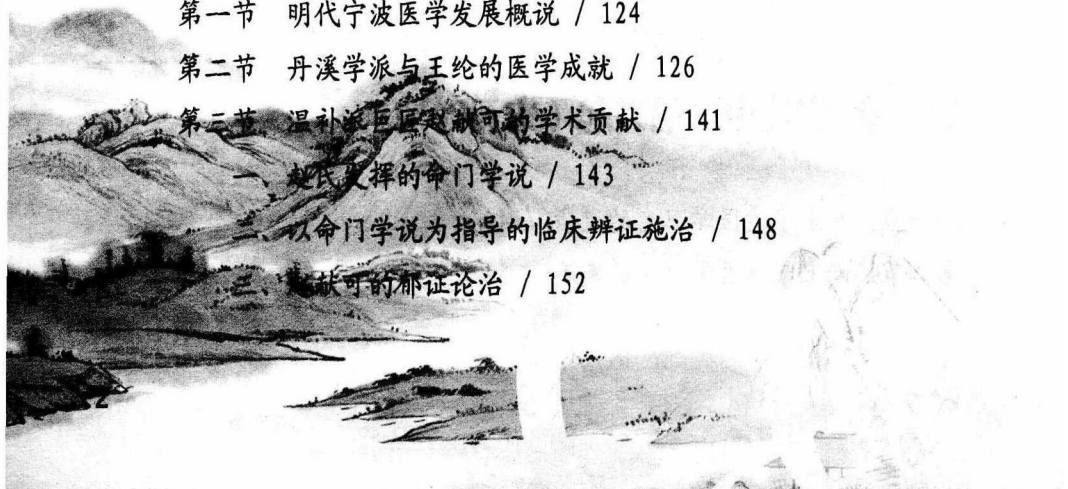 第一节 明代宁波医学发展概说 / 124
第二节 丹溪学派与王纶的医学成就 / 126
第三节 温补派巨匠赵献可的学术贡献 / 141
一、赵氏发挥的命门学说 / 143
二、以命门学说为指导的临床辨证施治 / 148
三、赵献可的郁证论治 / 152
2